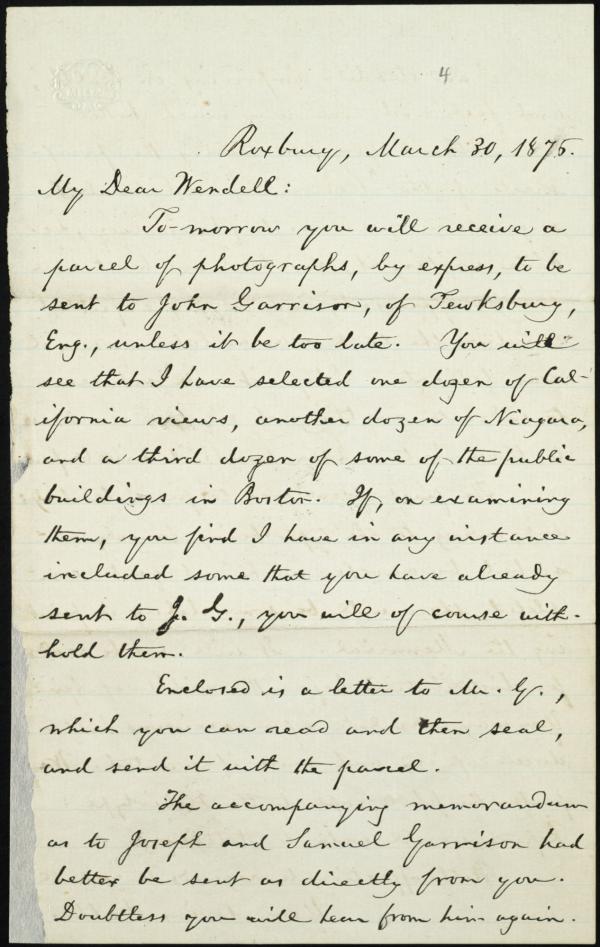 4
Roxbury, March 30, 1876.
My Dear Wendell:
To-morrow you will receive a
parcel of photographs, by express, to be
sent to John Garrison, of Tewksbury,
Eng., unless it be too late. You will
see that I have selected one dozen of Cal-
ifornia views, another dozen of Niagara,
and a third dozen of some of the public
buildings in Boston. If, on examining
them, you find I have in any instance
included some that you have already
sent to J. G., you will of course with-
hold them.
Enclosed is a letter to Mr. G.,
which you can read and then seal,
and send it with the parcel.
The accompanying memorandum
as to Joseph and Samuel Garrison had
better be sent as directly from you.
Doubtless you will hear from him again.